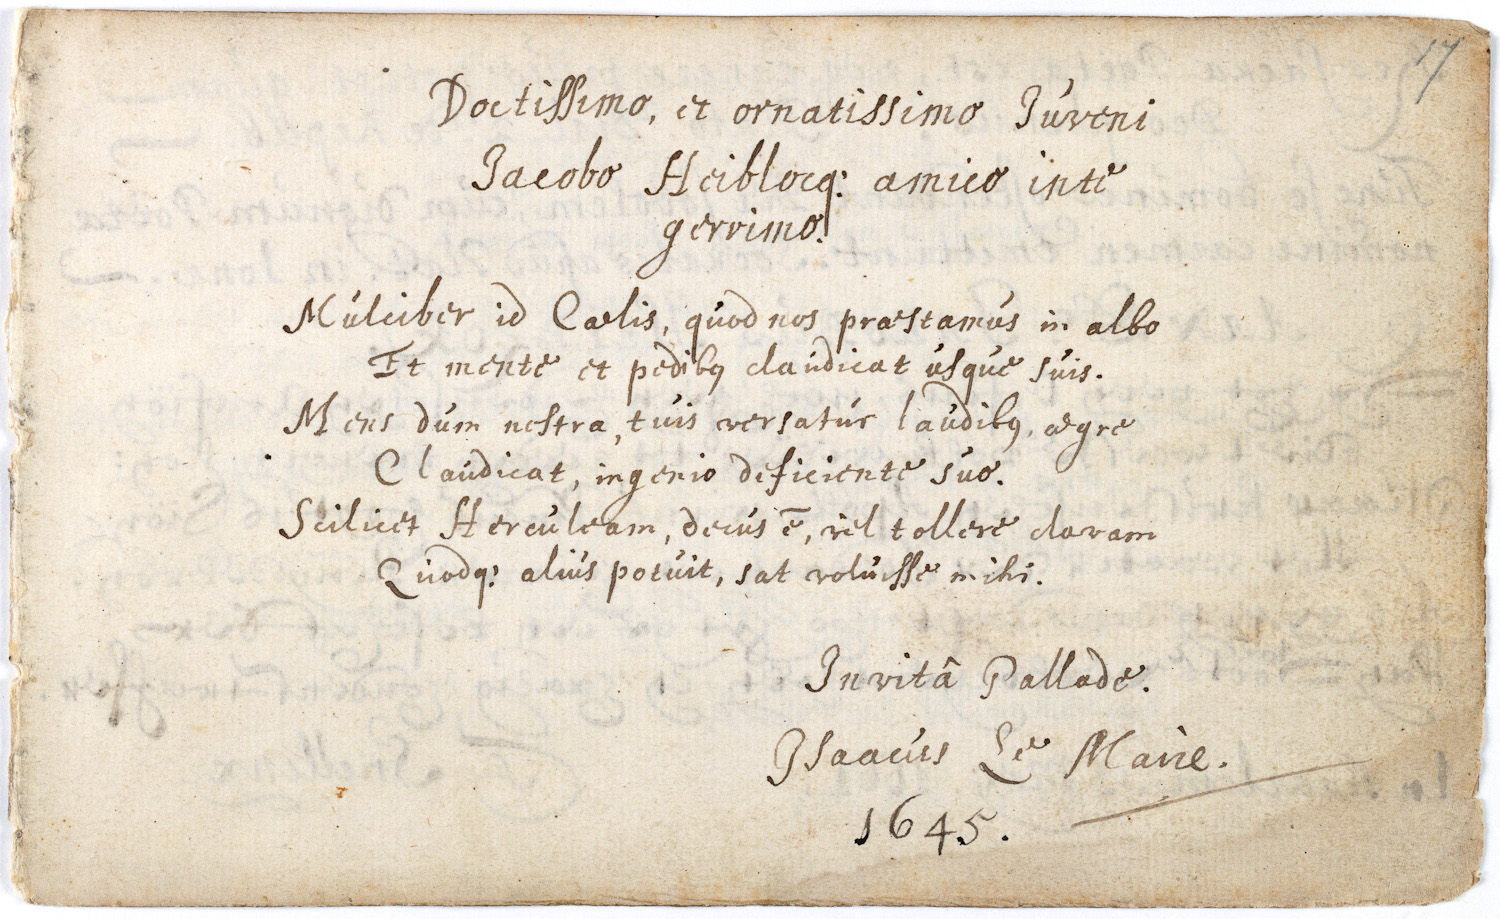 17
Doctissimo, et ornatissimo Juveni
Jacobo Heiblocq: amico inte
gerrimo.
Mulciber id Cælis, quod nos præstamus in albo
Et mente et pedibq claudicat usque suis.
Mens dum nostra, tuis versatur laudibq, ægre
Claudicat, ingenio deficiente suo.
Scilicet Herculeam, decus ē, vel tollere clavam
Quodq: alius potuit, sat voluisse mihi.
Invitâ Pallade.
Isaacus Le Maire.
1645.